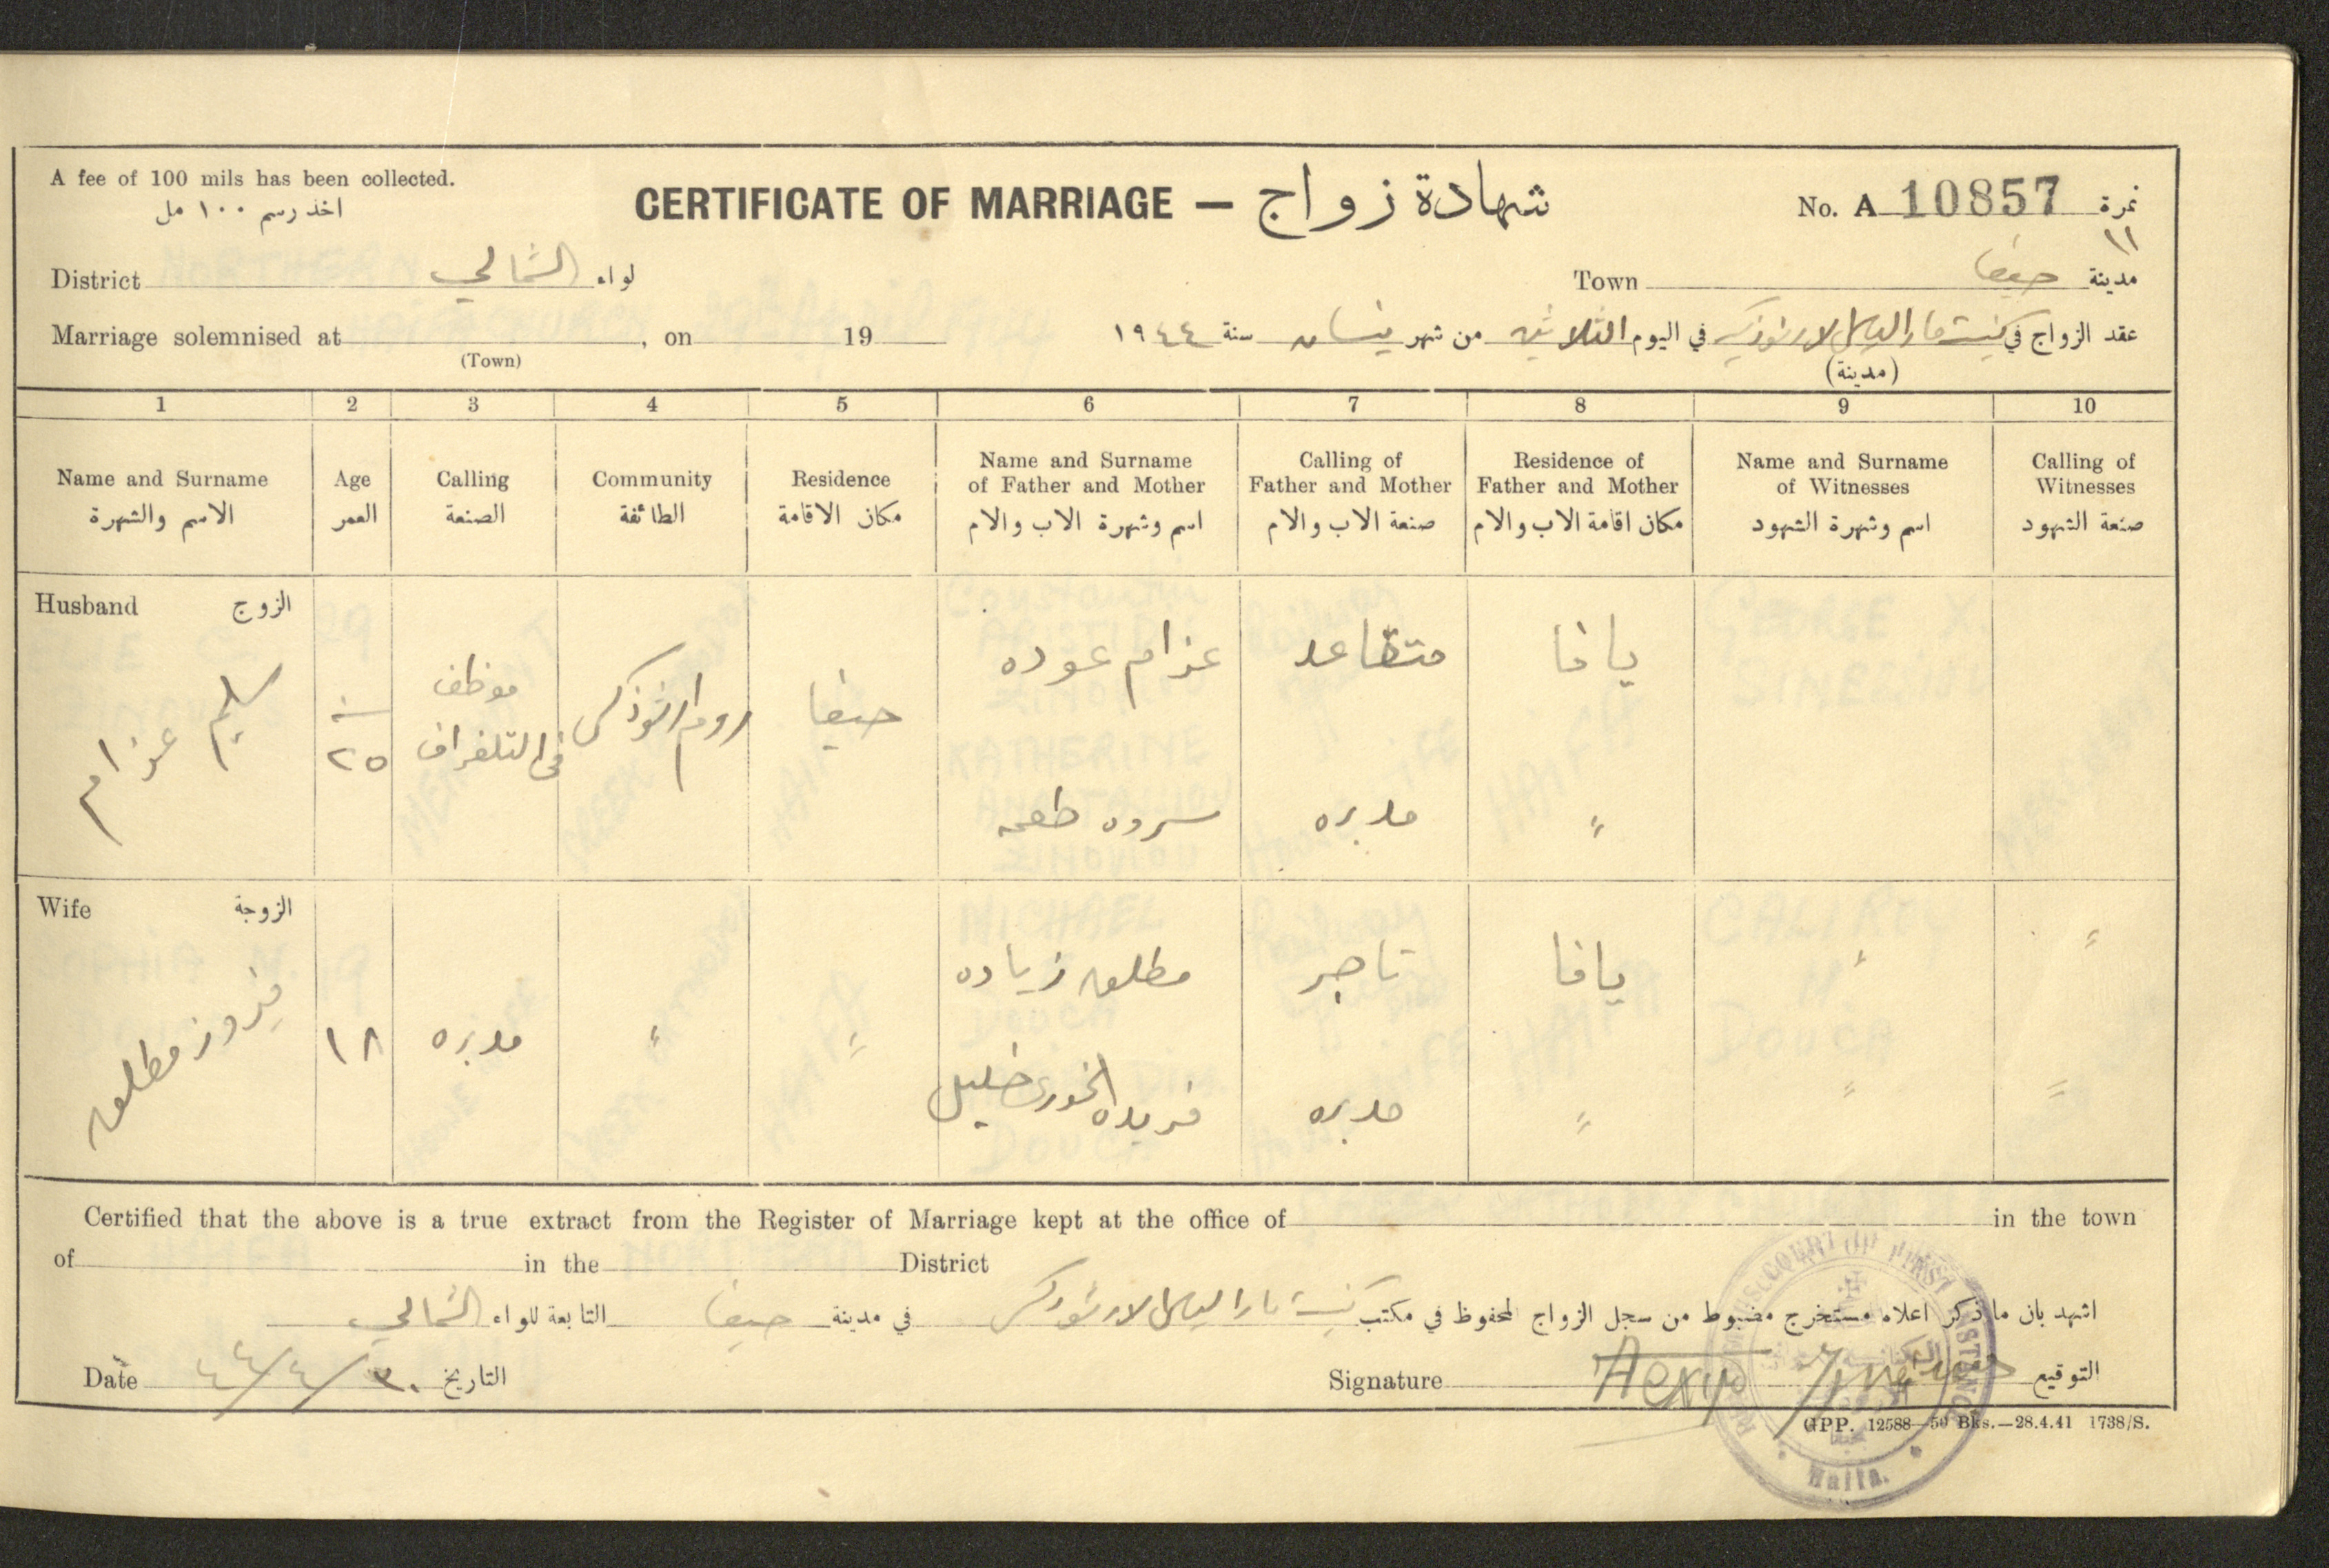 A fee of 100 mils has been collected.
اخذ رسم ١٠٠ مل
CERTIFICATE OF MARRIAGE — شهادة زواج
No. A 10857 نمرة
١١
District الشمالي لواء
Town حيفا مدينة
Marriage solemnised at , on 19
(Town)
عقد الزواج في كنيسة مار الياس الارثوذكسية في اليوم الثلاثين من شهر نيسان سنة ١٩٤٤
(مدينة)
1 2 3 4 5 6 7 8 9 10
Name and Surname
الاسم والشهرة
Age
العمر
Calling
الصنعة
Community
الطائفة
Residence
مكان الاقامة
Name and Surname
of Father and Mother
اسم وشهرة الاب والام
Calling of
Father and Mother
صنعة الاب والام
Residence of
Father and Mother
مكان اقامة الاب والام
Name and Surname
of Witnesses
اسم وشهرة الشهود
Calling of
Witnesses
صنعة الشهود
Husband الزوج
سليم عزام
سنة
٢٥
موظف
في التلغراف
روم ارثوذكس
حيفا
عزام عوده
متقاعد
يافا
مدبره
〃
Wife الزوجة
فيروز مطلق
١٨
مدبره
〃
〃
مطلق زياده
تاجر
يافا
〃
〃
فريده الخوري خليل
مدبره
〃
〃
〃
Certified that the above is a true extract from the Register of Marriage kept at the office of in the town
of in the District
اشهد بان ما ذكر اعلاه مستخرج مضبوط من سجل الزواج المحفوظ في مكتب كنيسة مار الياس الارثوذكس في مدينة حيفا التابعة للواء الشمالي
Date ٣٠/٤/٤٤ التاريخ
Signature التوقيع
GPP. 12588—50 Bks.—28.4.41 1738/S.
COURT OF FIRST INSTANCE
Haifa.